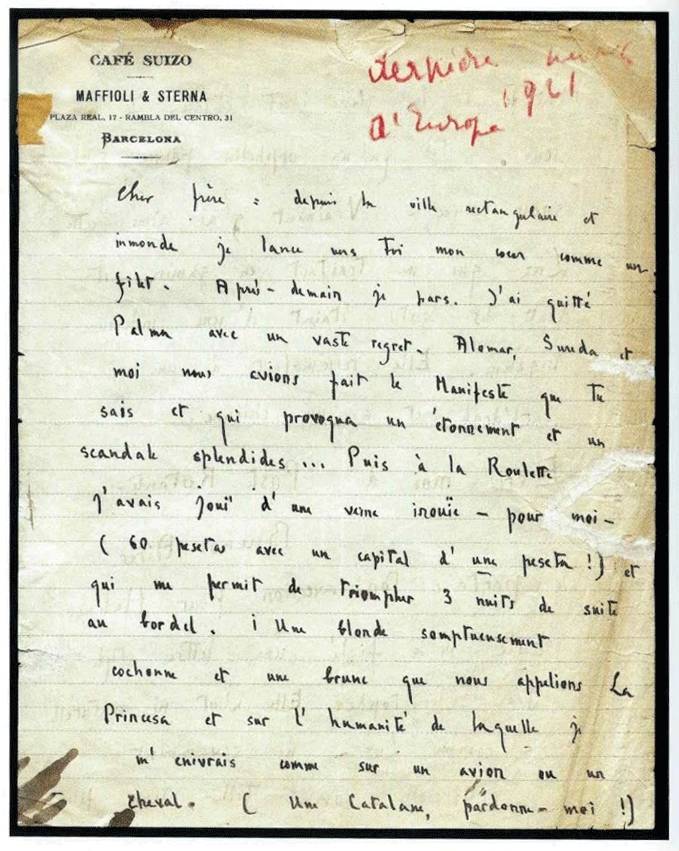 CAFÉ SUIZO
MAFFIOLI & STERNA
PLAZA REAL, 17 - RAMBLA DEL CENTRO, 31
BARCELONA
dernière
1921
d'Europe
Cher frère = depuis la ville rectangulaire et
immonde je lance vers Toi mon cœur comme un
filet. Après-demain je pars. J'ai quitté
Palma avec un vaste regret. Alomar, Sureda et
moi nous avions fait le Manifeste que Tu
sais et qui provoqua un étonnement et un
scandale splendides... Puis à la Roulette
j'avais jouï d'une veine inouïe – pour moi –
(60 pesetas avec un capital d'une peseta!) et
qui me permit de triompher 3 nuits de suite
au bordel. ¡ Une blonde somptueusement
cochonne et une brune que nous appelions La
Princesa et sur l'humanité de laquelle je
m'enivrais comme sur un avion ou un
cheval. (Une Catalane, pardonne-moi!)